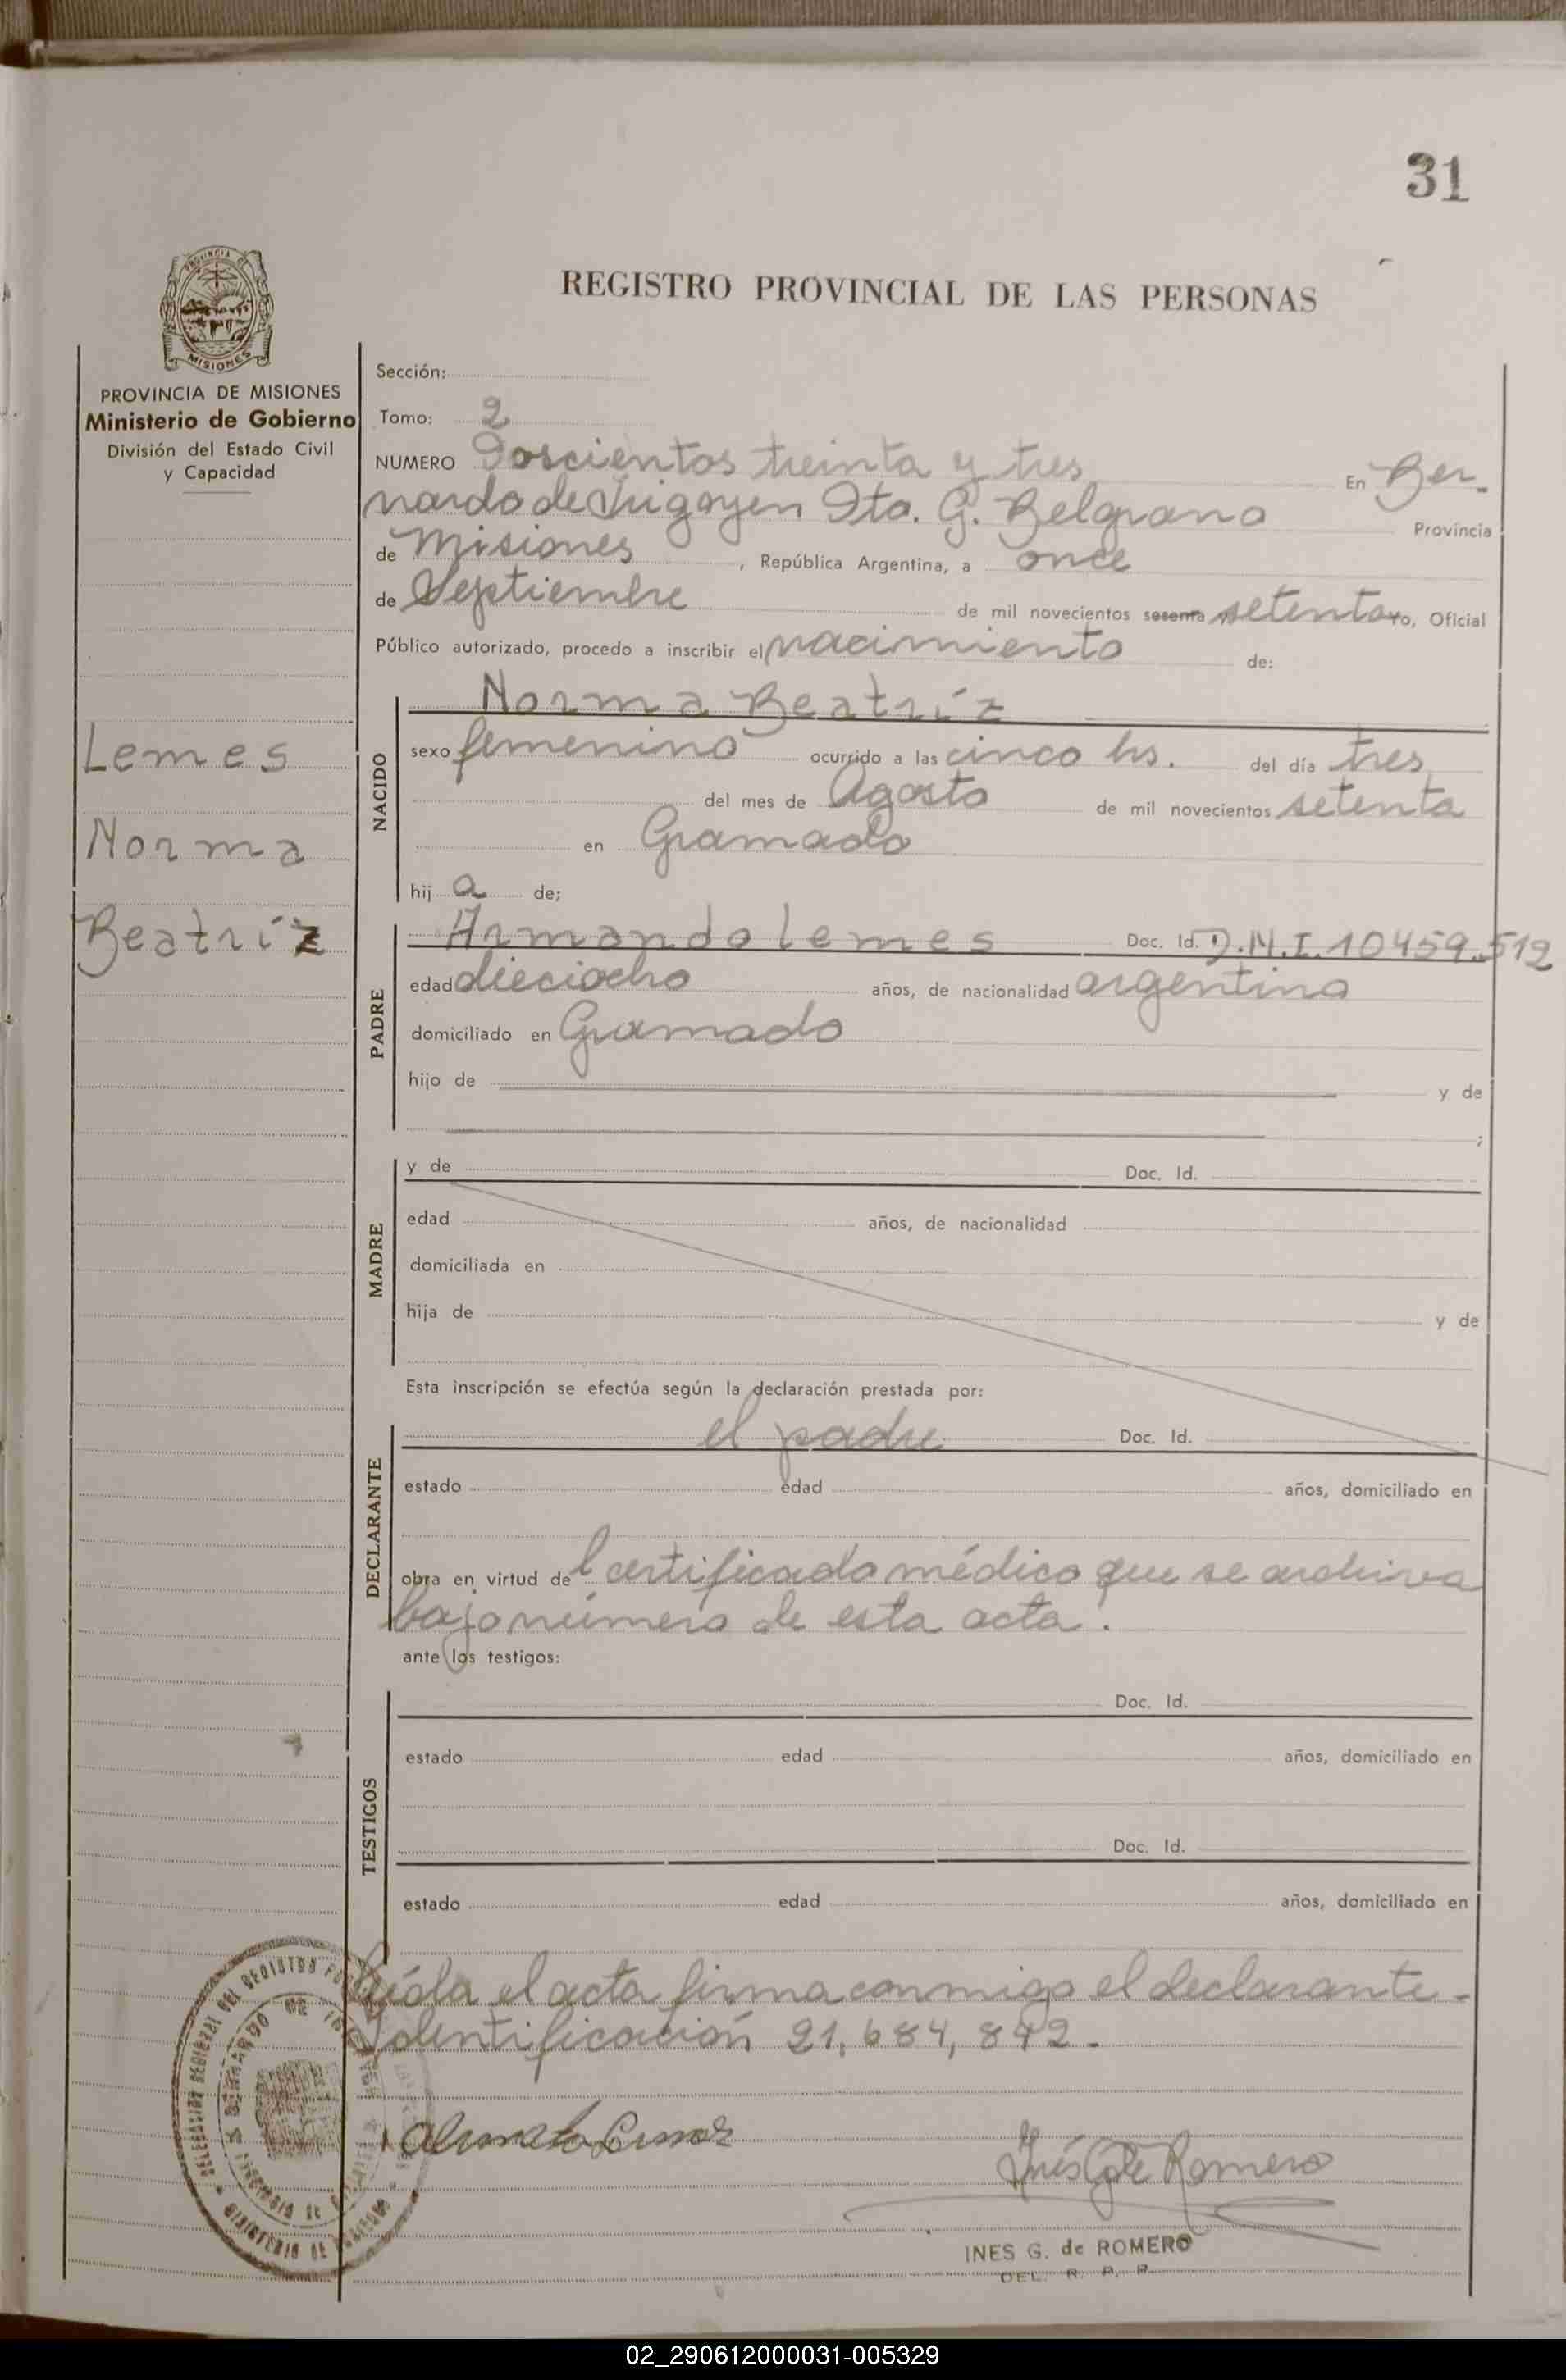 31
REGISTRO PROVINCIAL DE LAS PERSONAS
PROVINCIA DE MISIONES
Ministerio de Gobierno
División del Estado Civil
y Capacidad
Lemes
Norma
Beatríz
Sección:
Tomo: 2
NUMERO Doscientos treinta y tres En Ber-
nardo de Irigoyen Dto. G. Belgrano Provincia
de Misiones, República Argentina, a once
de Septiembre de mil novecientos sesenta y setenta yo, Oficial
Público autorizado, procedo a inscribir el nacimiento de:
NACIDO
Norma Beatríz
sexo femenino ocurrido a las cinco hs. del día tres
del mes de Agosto de mil novecientos setenta
en Gramado
hij a de;
PADRE
Armando Lemes Doc. Id. D.N.I. 10459.512
edad dieciocho años, de nacionalidad argentina
domiciliado en Gramado
hijo de y de
;
MADRE
y de Doc. Id.
edad años, de nacionalidad
domiciliada en
hija de y de
Esta inscripción se efectúa según la declaración prestada por:
DECLARANTE
el padre Doc. Id.
estado edad años, domiciliado en
obra en virtud del certificado médico que se archiva
bajo número de esta acta.
ante los testigos:
TESTIGOS
Doc. Id.
estado edad años, domiciliado en
Doc. Id.
estado edad años, domiciliado en
Leída el acta firma conmigo el declarante.
Identificación 21,684,842.
Inés G de Romero
INES G. de ROMERO
DEL. R. P. P.
02_290612000031-005329